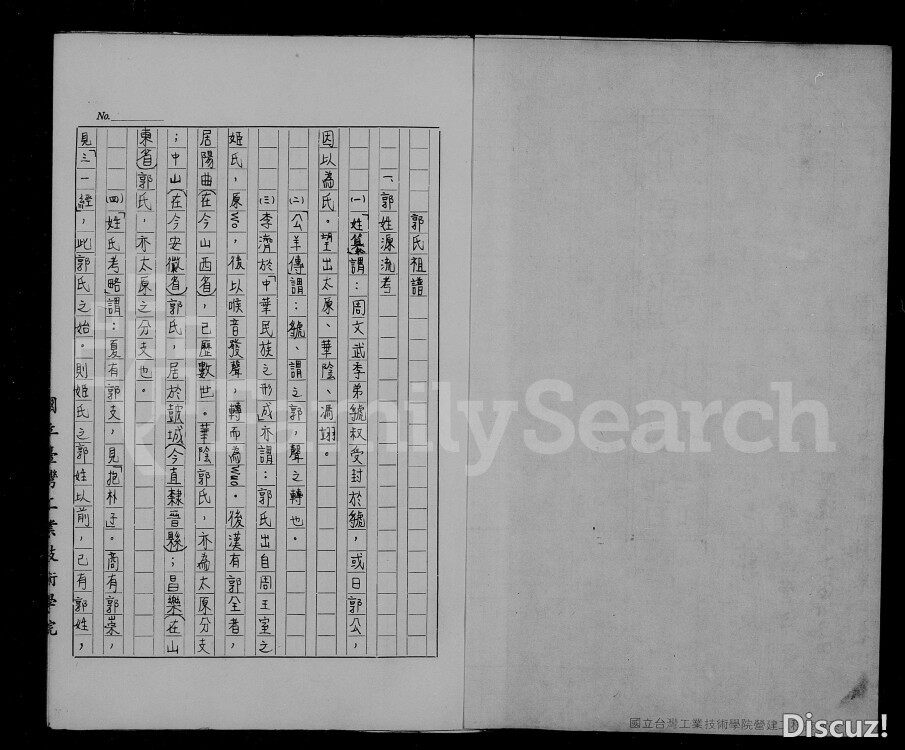 No.
郭氏祖譜
一、郭姓源流考
㈠「姓纂」謂：周文武季弟虢叔受封於虢，或曰郭公，
因以為氏。望出太原、華陰、馮翊。
㈡「公羊傳謂：虢、謂之郭，聲之轉也。
㈢李濟於「中華民族之形成」亦謂：郭氏出自周王室之
姬氏，原wo，後以喉音發聲，轉而為kwo。後漢有郭全者，
居陽曲（在今山西省），已歷數世。華陰郭氏，亦為太原分支
；中山（在今安徽省）郭氏，居於鼓城（今直隸晉縣）；昌樂（在山
東省）郭氏，亦太原之分支也。
㈣「姓氏考略」謂：夏有郭支，見「抱朴子」。商有郭崇，
見「三一經」，此郭氏之始。則姬氏之郭姓以前，已有郭姓，
國立臺灣工業技術學院
FamilySearch
國立台灣工業技術學院營建工
Discuz!